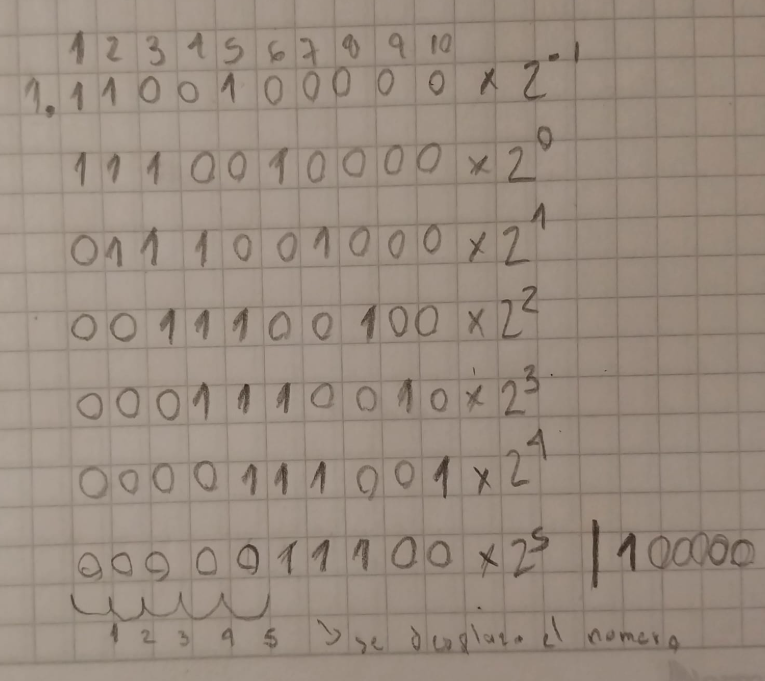 1 2 3 4 5 6 7 8 9 10
1.1100100000 x 2^-1
1110010000 x 2^0
0111001000 x 2^1
0011100100 x 2^2
0001110010 x 2^3
0000111001 x 2^4
0000011100 x 2^5 | 100000
1 2 3 4 5 se desplaza el numero